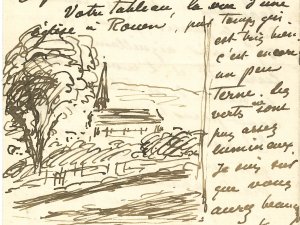 Votre Tableau, la vue d'une
église à Rouen, par temps gris
est très bien
c'est encore
un peu
terne. les
verts sont
pas assez
lumineux.
Je suis sûr
que vous
aurez beauc